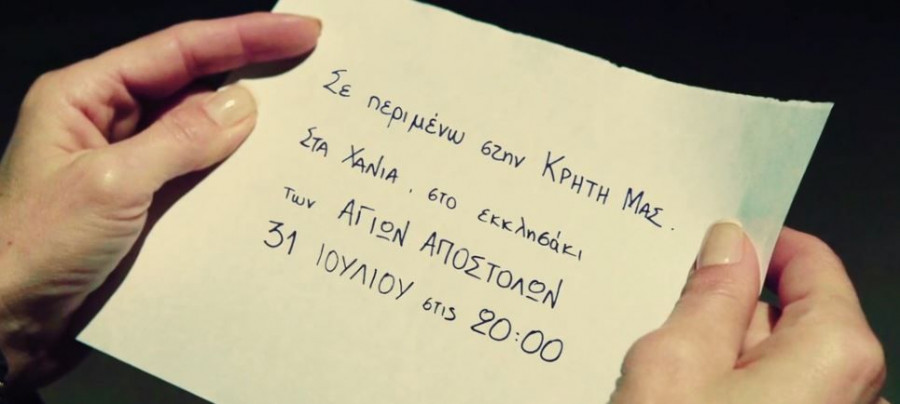 Σε περιμένω στην ΚΡΗΤΗ ΜΑΣ.
ΣΤΑ ΧΑΝΙΑ, στο εκκλησάκι
των ΑΓΙΩΝ ΑΠΟΣΤΟΛΩΝ
31 ΙΟΥΛΙΟΥ στις 20:00